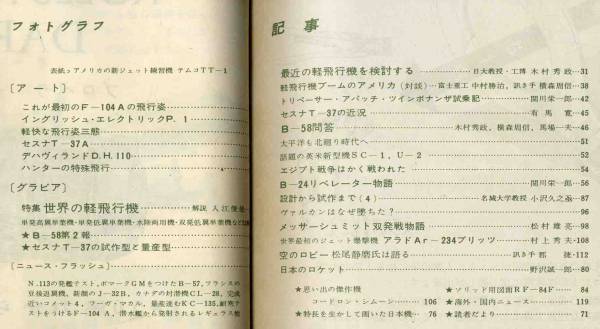 フォトグラフ
表紙：アメリカの新ジェット練習機 テムコTT－1
〔ア ー ト〕
これが最初のF－104Aの飛行姿
イングリッシュ・エレクトリックP．1
軽快な飛行姿三態
セスナT－37A
デハヴィランドD.H.110
ハンターの特殊飛行
〔グラビア〕
特集 世界の軽飛行機 解説 入江俊
単発高翼単葉機・単発低翼単葉機・水陸両用機・双発低翼単葉機など
★B－58第2報
★セスナT－37の試作型と量産型
〔ニュース・フラッシュ〕
N.113の発艦テスト，ボマークGMをつけたB－57，フランスの
双発追翼機，新顔のJ－32B，カナダの対潜機CL－28，完成
近いコメット4，フーガ・マカル，量産進むKC－135，耐寒テ
ストをうけるF－104A，潜水艦から発射されるレギュラス他
記 事
最近の軽飛行機を検討する 日大教授・工博 木村秀政 31
軽飛行機ブームのアメリカ（対談） 富士重工 中村勝治，訊き手 横森周信 38
トリペーサー・アパッチ・ツインボナンザ試乗記 関川栄一郎 42
セスナT－37の近況 有馬寛 45
B－58問答 木村秀政，横森周信，馬場一夫 46
太平洋も北廻り時代へ 51
話題の英米新型機SC－1，U－2 52
エジプト戦争はかく戦われた 54
B－24リベレーター物語 関川栄一郎 56
設計から試作まで（4） 名城大学教授 小沢久之丞 87
ヴァルカンはなぜ墜ちた？ 96
メッサーシュミット双発戦物語 松村雄亮 98
世界最初のジェット爆撃機 アラドAr－234ブリッツ 村上秀夫 108
空のロビー 松尾静磨氏は語る 訊き手 郡 捷 112
日本のロケット 野沢誠一郎 80
★思い出の傑作機
コードロン・シムーン 106
★特長を生かして画いた日本機 76
★ソリッド用図面RF－84F 84
★海外・国内ニュース 119
★読者だより 71